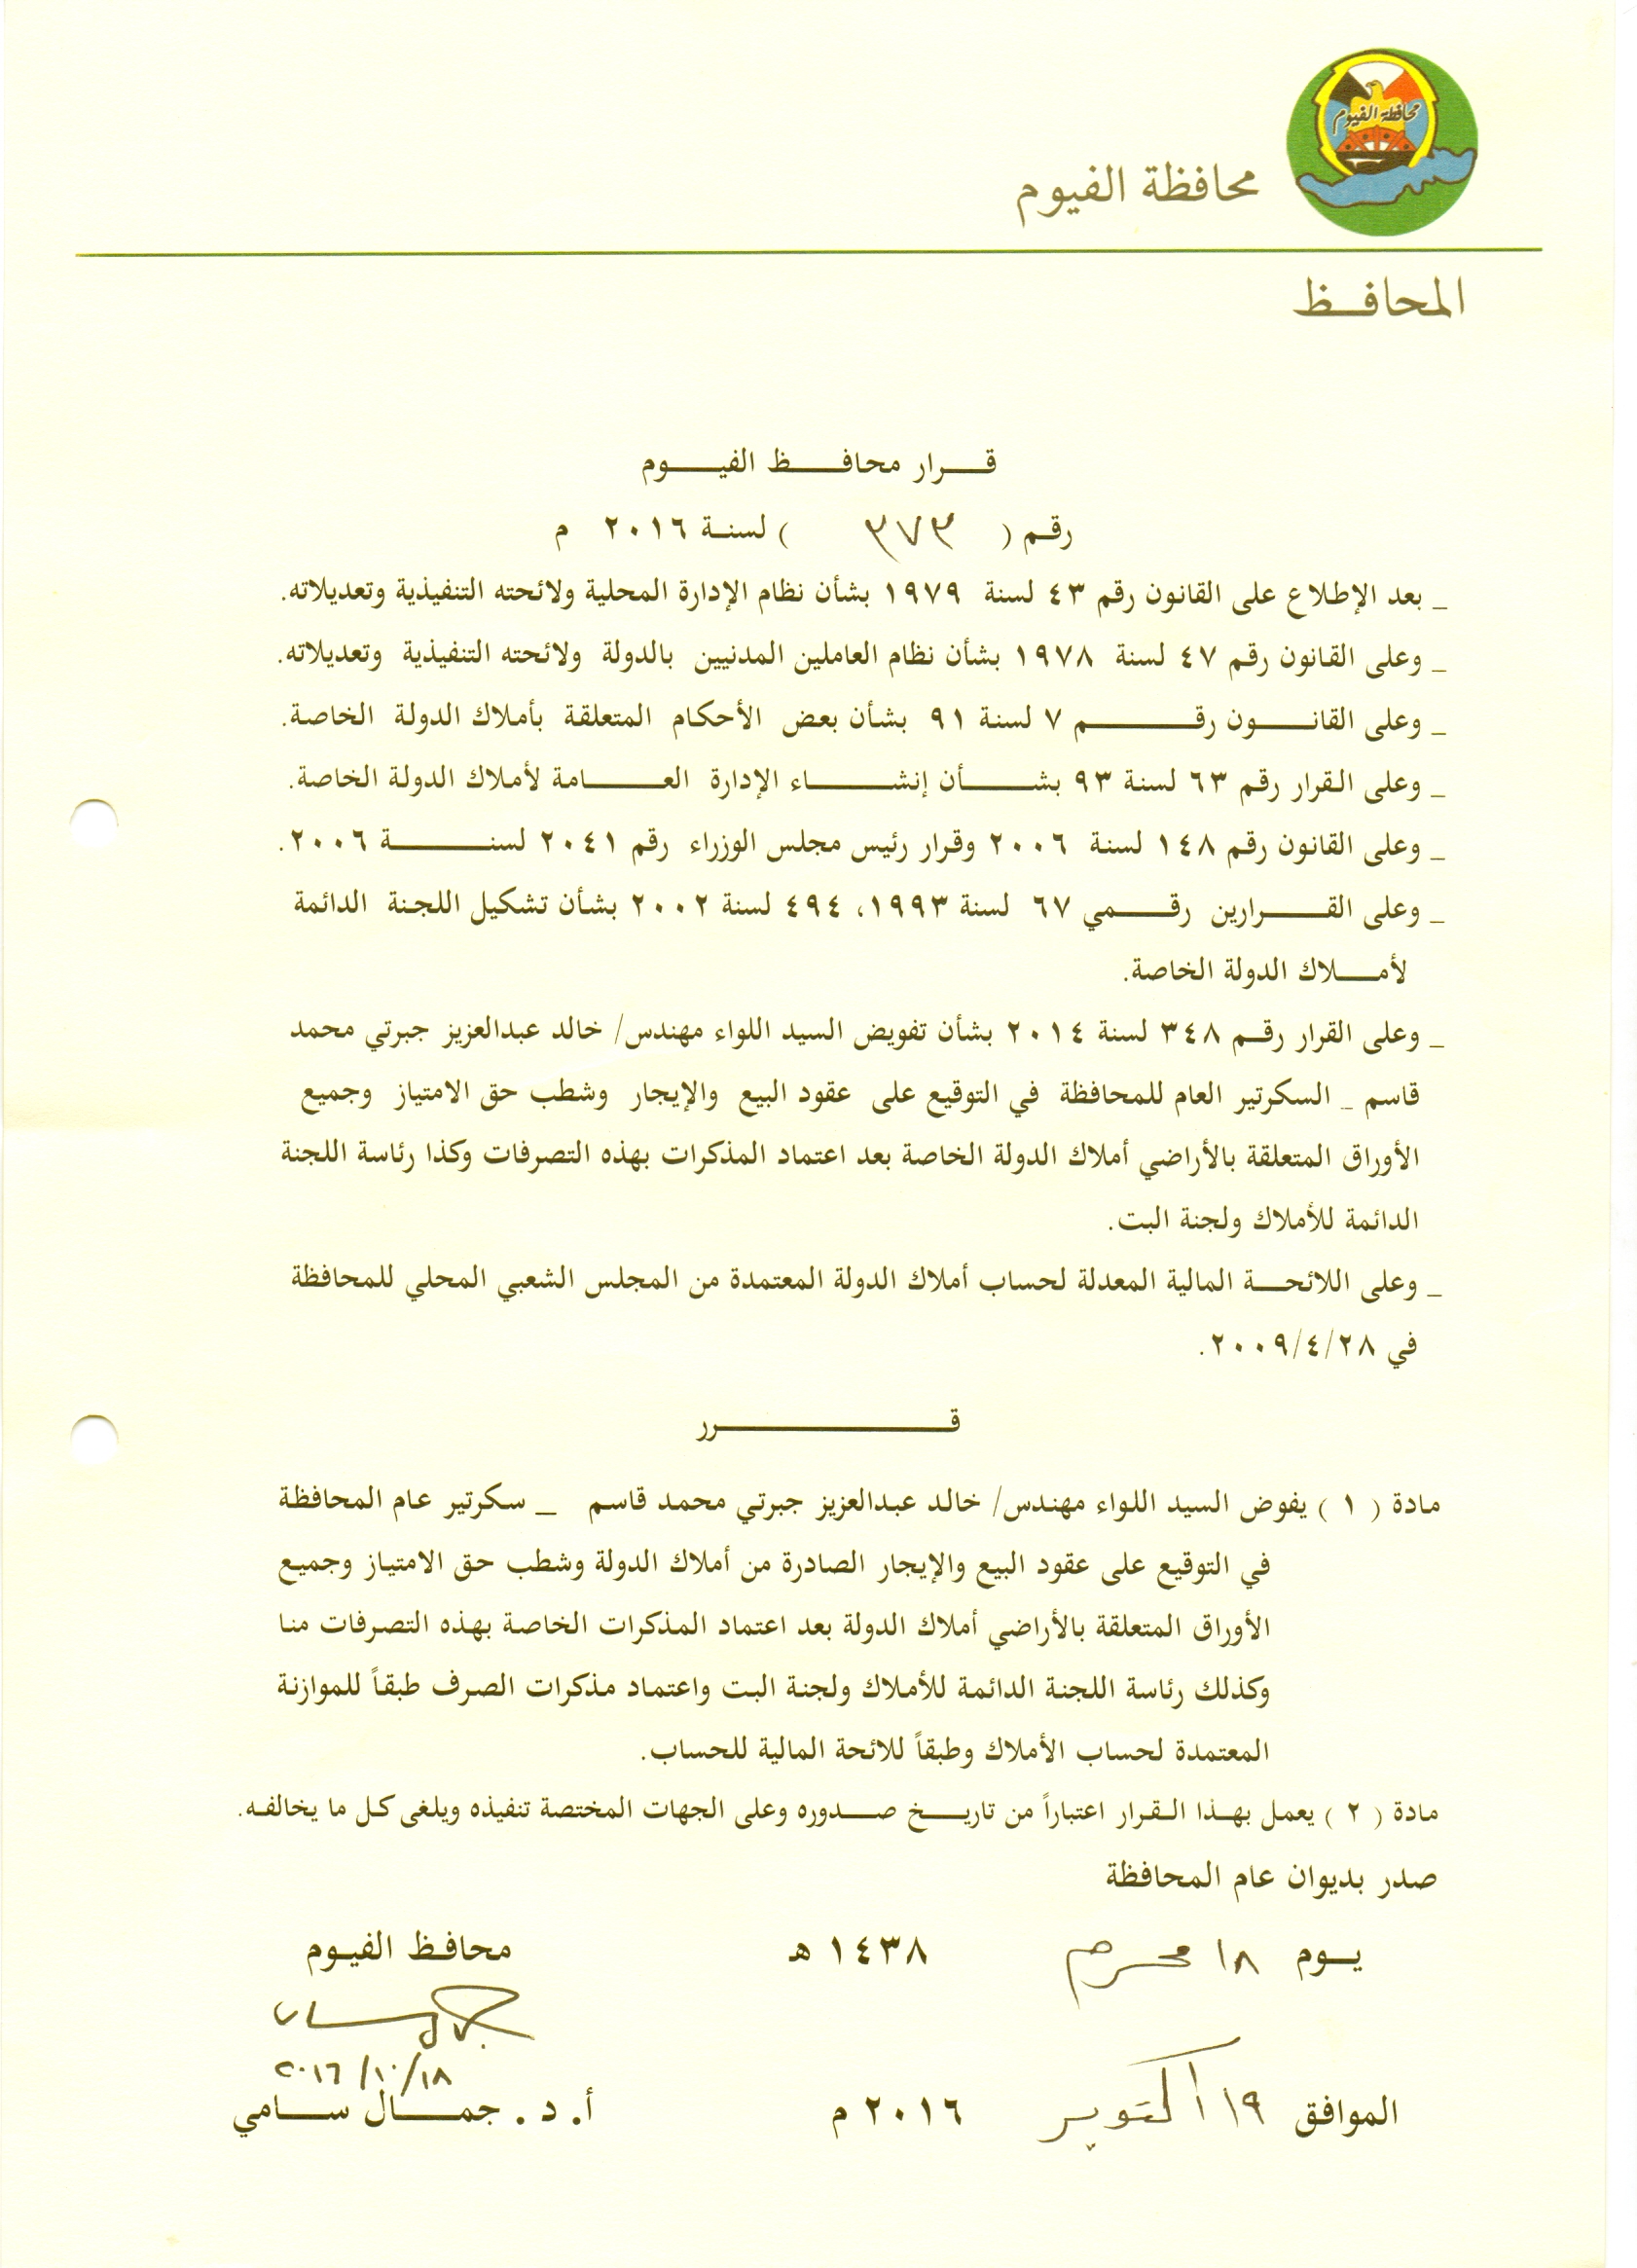 محافظة الفيوم
محافظة الفيوم
المحافظ
قرار محافظ الفيوم
رقم ( ٣٧٣ ) لسنة ٢٠١٦ م
_ بعد الإطلاع على القانون رقم ٤٣ لسنة ١٩٧٩ بشأن نظام الإدارة المحلية ولائحته التنفيذية وتعديلاته.
_ وعلى القانون رقم ٤٧ لسنة ١٩٧٨ بشأن نظام العاملين المدنيين بالدولة ولائحته التنفيذية وتعديلاته.
_ وعلى القانون رقم ٧ لسنة ٩١ بشأن بعض الأحكام المتعلقة بأملاك الدولة الخاصة.
_ وعلى القرار رقم ٦٣ لسنة ٩٣ بشأن إنشاء الإدارة العامة لأملاك الدولة الخاصة.
_ وعلى القانون رقم ١٤٨ لسنة ٢٠٠٦ وقرار رئيس مجلس الوزراء رقم ٢٠٤١ لسنة ٢٠٠٦.
_ وعلى القرارين رقمي ٦٧ لسنة ١٩٩٣، ٤٩٤ لسنة ٢٠٠٢ بشأن تشكيل اللجنة الدائمة
لأملاك الدولة الخاصة.
_ وعلى القرار رقم ٣٤٨ لسنة ٢٠١٤ بشأن تفويض السيد اللواء مهندس/ خالد عبدالعزيز جبرتي محمد
قاسم _ السكرتير العام للمحافظة في التوقيع على عقود البيع والإيجار وشطب حق الامتياز وجميع
الأوراق المتعلقة بالأراضي أملاك الدولة الخاصة بعد اعتماد المذكرات بهذه التصرفات وكذا رئاسة اللجنة
الدائمة للأملاك ولجنة البت.
_ وعلى اللائحة المالية المعدلة لحساب أملاك الدولة المعتمدة من المجلس الشعبي المحلي للمحافظة
في ٢٠٠٩/٤/٢٨.
قرر
مادة ( ١ ) يفوض السيد اللواء مهندس/ خالد عبدالعزيز جبرتي محمد قاسم _ سكرتير عام المحافظة
في التوقيع على عقود البيع والإيجار الصادرة من أملاك الدولة وشطب حق الامتياز وجميع
الأوراق المتعلقة بالأراضي أملاك الدولة بعد اعتماد المذكرات الخاصة بهذه التصرفات منا
وكذلك رئاسة اللجنة الدائمة للأملاك ولجنة البت واعتماد مذكرات الصرف طبقاً للموازنة
المعتمدة لحساب الأملاك وطبقاً للائحة المالية للحساب.
مادة ( ٢ ) يعمل بهذا القرار اعتباراً من تاريخ صدوره وعلى الجهات المختصة تنفيذه ويلغى كل ما يخالفه.
صدر بديوان عام المحافظة
يوم ١٨ محرم ١٤٣٨ هـ
محافظ الفيوم
٢٠١٦/١٠/١٨
الموافق ١٩ أكتوبر ٢٠١٦ م
أ. د. جمال سامي